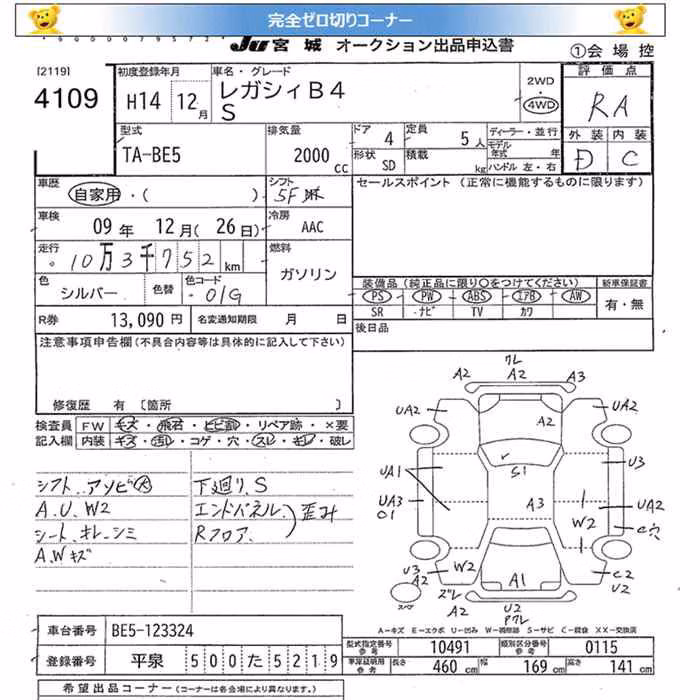 完全ゼロ切りコーナー
JU 宮城 オークション出品申込書
①会場控
[2119]
4109
初度登録年月
H14 12月
車名・グレード
レガシィB4
S
2WD
・
4WD
評価点
RA
外装 内装
D C
型式
TA-BE5
排気量
2000 cc
ドア 4
定員 5人
形状 SD
積載 kg
ディーラー・並行
モデル年式 年
ハンドル 左・右
車歴
自家用・( )
シフト
5F
セールスポイント (正常に機能するものに限ります)
車検
09年 12月(26日)
冷房
AAC
走行
10万3千752 km
燃料
ガソリン
色
シルバー
色替
色コード
01G
装備品(純正品に限り○をつけてください)
PS PW ABS エアB AW
SR ナビ TV カワ
新車保証書
有・無
R券 13,090円
名変通知期限 月 日
後日品
注意事項申告欄(不具合内容等は具体的に記入して下さい)
修復歴 有 [箇所 ]
検査員記入欄
FW キズ・飛石・ヒビ割・リペア跡・×要
内装 キズ・汚れ・コゲ・穴・スレ・キレ・破レ
シフト アソビ大
A.U.W2
シート キレ シミ
A.Wキズ
下廻り.S
エンドパネル.
Rフロア.
歪み
クレ
A2 A2 A3
UA2 A2 UA2
UA1 S1 U3
UA3 A3 UA2
01 W2 C穴
U3 W2 C2
A2 A1 U2
ズレ
A2 U2
Pクレ
スペア
A-キズ E-エクボ U-凹み W-補修跡 S-サビ C-腐食 XX-交換済
車台番号 BE5-123324
型式指定番号参考 10491
類別区分番号参考 0115
登録番号 平泉 500た5219
車庫証明用参考 長さ 460cm 幅 169cm 高さ 141cm
希望出品コーナー(コーナーは各会場により異なります。)